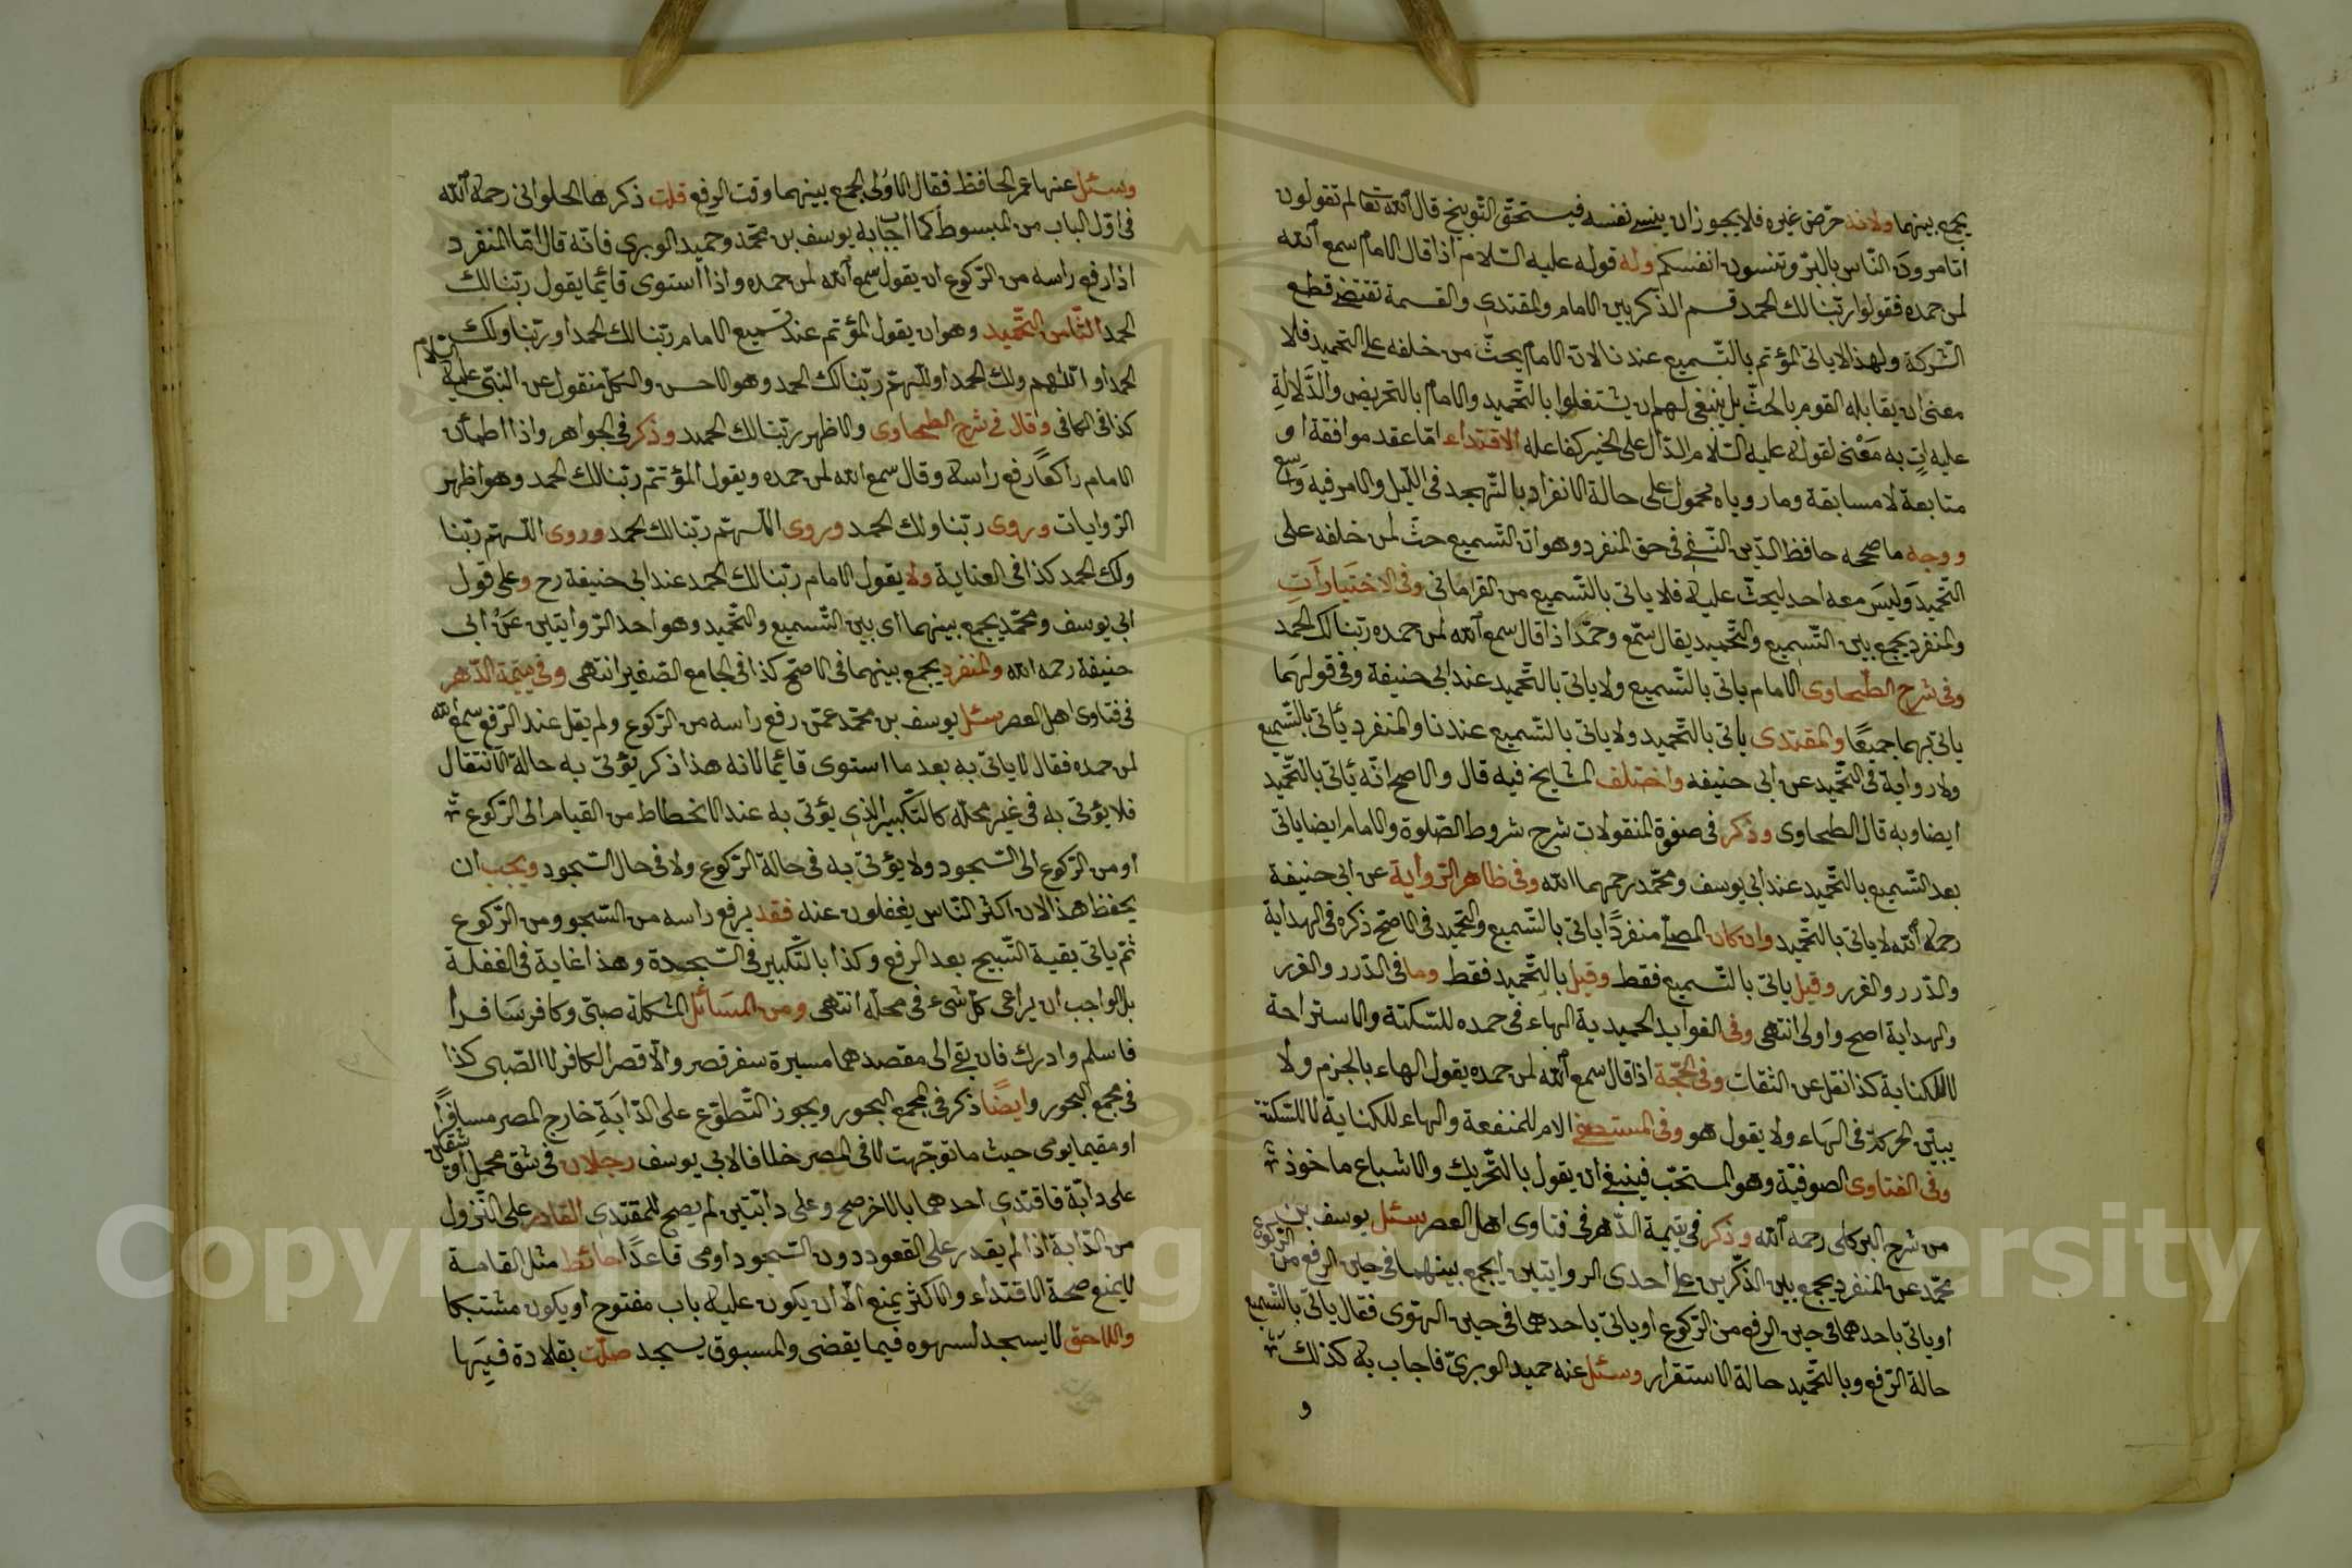 يجمع بينهما ولانه حرّض غيره فلا يجوز ان ينسى نفسه فيستحقّ التّوبيخ قال الله تعا لم تقولون
اتامرون النّاس بالبرّ وتنسون انفسكم وله قوله عليه السّلام اذا قال الامام سمع الله
لمن حمده فقولوا ربّنا لك الحمد قسم الذّكر بين الامام والمقتدى والقسمة تقتضى قطع
الشّركة ولهذا لا ياتى المؤتم بالتّسميع عندنا لانّ الامام يحثّ من خلفه على التحميد فلا
معنى ان يقابله القوم بالحثّ بل ينبغى لهم ان يشتغلوا بالتّحميد والامام بالتحريض والدّلالةِ
عليه اتٍ به مَعْنى لقوله عليه السّلام الدّال على الخير كفاعله الاقتداء امّا عقد موافقة او
متابعة لا مسابقة وما روياه محمول على حالة الانفراد بالتّهجد فى اللّيل والامر فيه وَاسع
ووجه ما صححه حافظ الدّين النّسفى فى حق المنفرد وهو انّ التّسميع حثّ لمن خلفه على
التّحميد وَليسَ معه احد ليحثّ عليه فلا ياتى بالتّسميع من القرامانى وفى الاختيارَاتِ
والمنفرد يجمع بين التّسميع والتّحميد يقال سمّع وحمّد اذا قال سمع الله لمن حمده ربّنا لك الحمد
وفى شرح الطّحاوى الامام ياتى بالتّسميع ولا ياتى بالتّحميد عند ابى حنيفة وفى قولهَما
ياتى بهما جميعًا والمقتدى يأتى بالتّحميد ولا ياتى بالتّسميع عندنا والمنفرد يأتى بالتّسميع
ولا رواية فى التّحميد عن ابى حنيفه واختلف المشايخ فيه قال والاصح انّه يأتى بالتّحميد
ايضا وبه قال الطحاوى وذكر فى صفوة المنقولات شرح شروط الصّلوة والامام ايضا ياتى
بعد التّسميع بالتّحميد عند ابى يوسف ومحمّد رحمهما الله وفى ظاهر الرّواية عن ابى حنيفة
رحمه الله لا ياتى بالتّحميد وان كان المصلّى منفردًا ياتى بالتّسميع والتّحميد فى الاصّح ذكره فى الهداية
والدّرر والغرر وقيل ياتى بالتّسميع فقط وقيل بالتّحميد فقط وما فى الدّرر والغرر
والهداية اصح واولى انتهى وفى الفوايد الحميدية الهاء فى حمده للسّكتة والاستراحة
لا للكناية كذا نقل عن الثقات وفى الحجّة اذا قال سمع الله لمن حمده يقول الهاء بالجزم ولا
يبيّن الحركة فى الهَاء ولا يقول هو وفى المستصفى الام للمنفعة والهاء للكناية لا للسّكتة
وفى الفتاوى الصوفيّة وهو المستحّب فينبغى ان يقول بالتّحريك والاشباع ماخوذ
من شرح البركلى رحمه الله وذكر فى يتيمة الدّهر فى فتاوى اهل العصر سئل يوسف بن
محمّد عن المنفرد يجمع بين الذّكرين على احدى الروايتين ايجمع بينهما فى حين الرفع من الركوع
او ياتى باحدهما فى حين الرفع من الرّكوع او ياتى باحدهما فى حين الهوّى فقال ياتى بالتّسميع
حالة الرّفع وبالتّحميد حالة الاستقرار وسئل عنه حميد الوبرىّ فاجاب به كذلك
و
وسئل عنها عمر الحافظ فقال الاولى الجمع بينهما وقت الرفع قلت ذكر ها الحلوانى رحمه الله
فى اوّل الباب من المبسوط كما اجاب به يوسف بن محمّد وحميد الوبرى فانّه قال امّا المنفرد
اذا رفع راسه من الرّكوع ان يقول سمع الله لمن حمده واذا استوى قائما يقول ربّنا لك
الحمد الثّامن التّحميد وهو ان يقول المؤتم عند تسميع الامام ربّنا لك الحمد او ربّنا ولك
الحمد او اللّهم ولك الحمد او اللّهمّ ربّنا لك الحمد وهو الاحسن والكلّ منقول عن النّبى عليه السّلام
كذا فى الكافى وقال فى شرح الطحاوى والاظهر ربّنا لك الحميد وذكر فى الجواهر واذا اطمأن
الامام راكعًا رفع راسه وقال سمع الله لمن حمده ويقول المؤتمّ ربّنا لك الحمد وهو اظهر
الرّوايات وروى ربّنا ولك الحمد وروى اللّهمّ ربّنا لك الحمد وروى اللّهمّ ربّنا
ولك الحمد كذا فى العناية ولا يقول الامام ربّنا لك الحمد عند ابى حنيفة رح وعلى قول
ابى يوسف ومحمّد يجمع بينهما اى بين التّسميع والتّحميد وهو احد الرّوايتين عَنْ ابى
حنيفة رحمه الله والمنفرد يجمع بينهما فى الاصّح كذا فى الجامع الصّغير انتهى وفى يتيمة الدّهر
فى فتاوى اهل العصر سئل يوسف بن محمّد عمّن رفع راسه من الرّكوع ولم يقل عند الرّفع سمع الله
لمن حمده فقال لا ياتى به بعد ما استوى قائما لانه هذا ذكر يؤتى به حالة الانتقال
فلا يؤتى به فى غير محلّه كالتّكبير الذى يؤتى به عند الانحطاط من القيام الى الرّكوع
او من الرّكوع الى السّجود ولا يؤتى به فى حالة الرّكوع ولا فى حال السّجود ويجب ان
يحفظ هذا لان اكثر النّاس يغفلون عنه فقد يرفع راسه من السّجود ومن الرّكوع
ثمّ ياتى بقية التّسبيح بعد الرفع وكذا بالتّكبير فى السّجدة وهذا غاية فى الغفلة
بل الواجب ان يراعى كلّ شىء فى محلّه انتهى ومن المسَائل المشكلة صبىّ وكافر سَافرا
فاسلم وادرك فان بقى الى مقصدهما مسيرة سفر قصر والّا قصر الكافر لا الصّبى كذا
فى مجمع البحور وايضًا ذكر فى مجمع البحور ويجوز التّطوّع على الدّابَةِ خارج المصر مسافرًا
او مقيما يومى حيث ما توجّهت لا فى المصر خلافا لابى يوسف رجلان فى شق محمل او شقّين
على دابّة فاقتدى احدهما بالاخر صح وعلى دابّتين لم يصح للمقتدى القادر على النّزول
من الدّابة اذا لم يقدر على القعود دون السّجود اومى قاعدًا حائط مثل القامة
لا يمنع صحة الاقتداء والاكثر يمنع الّا ان يكون عليه باب مفتوح او يكون مشتبكا
واللاحق لا يسجد لسهوه فيما يقضى والمسبوق يسجد صلّت بقلادة فيهَا